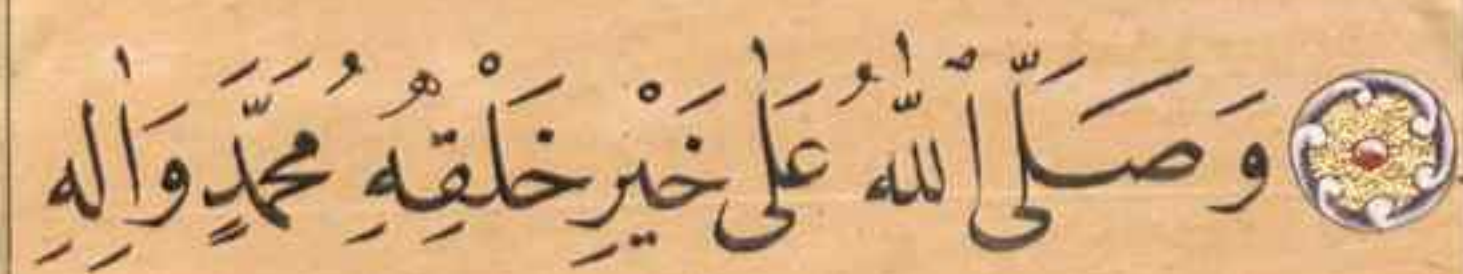 وَصَلَّى ٱللّٰهُ عَلٰى خَيْرِ خَلْقِهِ مُحَمَّدٍ وَاٰلِهِ